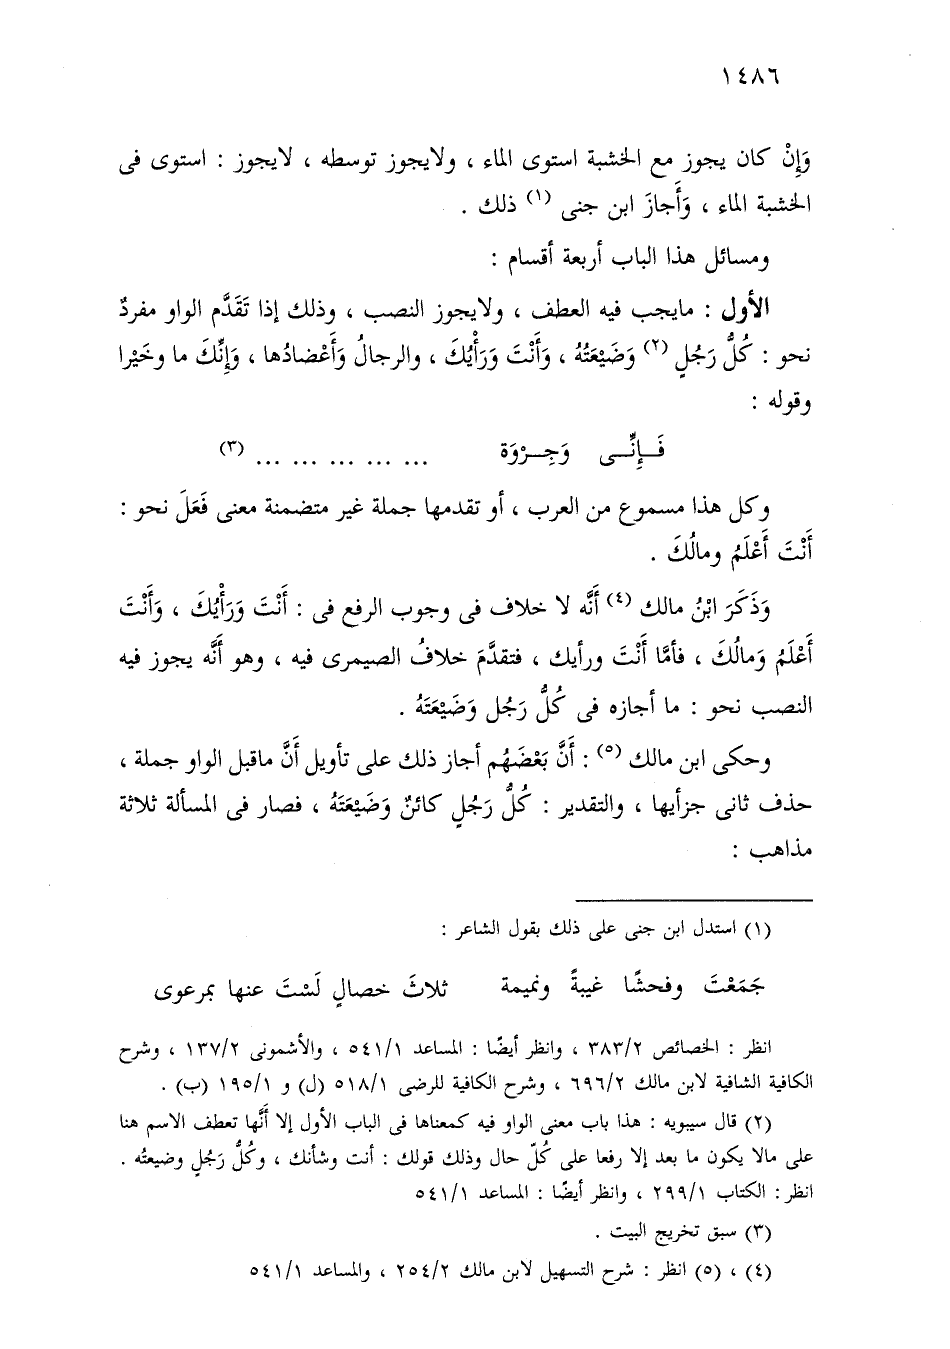 ١٤٨٦
وَإِنْ كان يجوز مع الخشبة استوى الماء ، ولايجوز توسطه ، لايجوز : استوى فى
الخشبة الماء ، وَأَجازَ ابن جنى (١) ذلك .
ومسائل هذا الباب أربعة أقسام :
الأول : مايجب فيه العطف ، ولايجوز النصب ، وذلك إذا تَقَدَّم الواو مفردٌ
نحو : كُلُّ رَجُلٍ (٢) وَضَيْعَتُهُ ، وَأَنْتَ وَرَأْيُكَ ، والرجالُ وَأَعْضادُها ، وَإِنَّكَ ما وخَيْرا
وقوله :
فَـإِنِّـى وَجِـرْوَة ... ... ... ... ... (٣)
وكل هذا مسموع من العرب ، أو تقدمها جملة غير متضمنة معنى فَعَلَ نحو :
أَنْتَ أَعْلَمُ ومالُكَ .
وَذَكَرَ ابْنُ مالك (٤) أَنَّه لا خلاف فى وجوب الرفع فى : أَنْتَ وَرَأْيُكَ ، وَأَنْتَ
أَعْلَمُ وَمالُكَ ، فأمَّا أَنْتَ ورأيك ، فتقدَّمَ خلافُ الصيمرى فيه ، وهو أنَّه يجوز فيه
النصب نحو : ما أجازه فى كُلُّ رَجُل وَضَيْعَتَهُ .
وحكى ابن مالك (٥) : أَنَّ بَعْضَهُم أجاز ذلك على تأويل أَنَّ ماقبل الواو جملة ،
حذف ثانى جزأيها ، والتقدير : كُلُّ رَجُلٍ كائنٌ وَضَيْعَتَهُ ، فصار فى المسألة ثلاثة
مذاهب :
(١) استدل ابن جنى على ذلك بقول الشاعر :
جَمَعْتَ وفحشًا غيبةً ونميمة ثلاثَ خصالٍ لَسْتَ عنها بمرعوى
انظر : الخصائص ٣٨٣/٢ ، وانظر أيضًا : المساعد ٥٤١/١ ، والأشمونى ١٣٧/٢ ، وشرح
الكافية الشافية لابن مالك ٦٩٦/٢ ، وشرح الكافية للرضى ٥١٨/١ (ل) و ١٩٥/١ (ب) .
(٢) قال سيبويه : هذا باب معنى الواو فيه كمعناها فى الباب الأول إلا أنَّها تعطف الاسم هنا
على مالا يكون ما بعد إلا رفعا على كُلّ حال وذلك قولك : أنت وشأنك ، وكُلُّ رَجُلٍ وضيعتُه .
انظر : الكتاب ٢٩٩/١ ، وانظر أيضًا : المساعد ٥٤١/١
(٣) سبق تخريج البيت .
(٤) ، (٥) انظر : شرح التسهيل لابن مالك ٢٥٤/٢ ، والمساعد ٥٤١/١